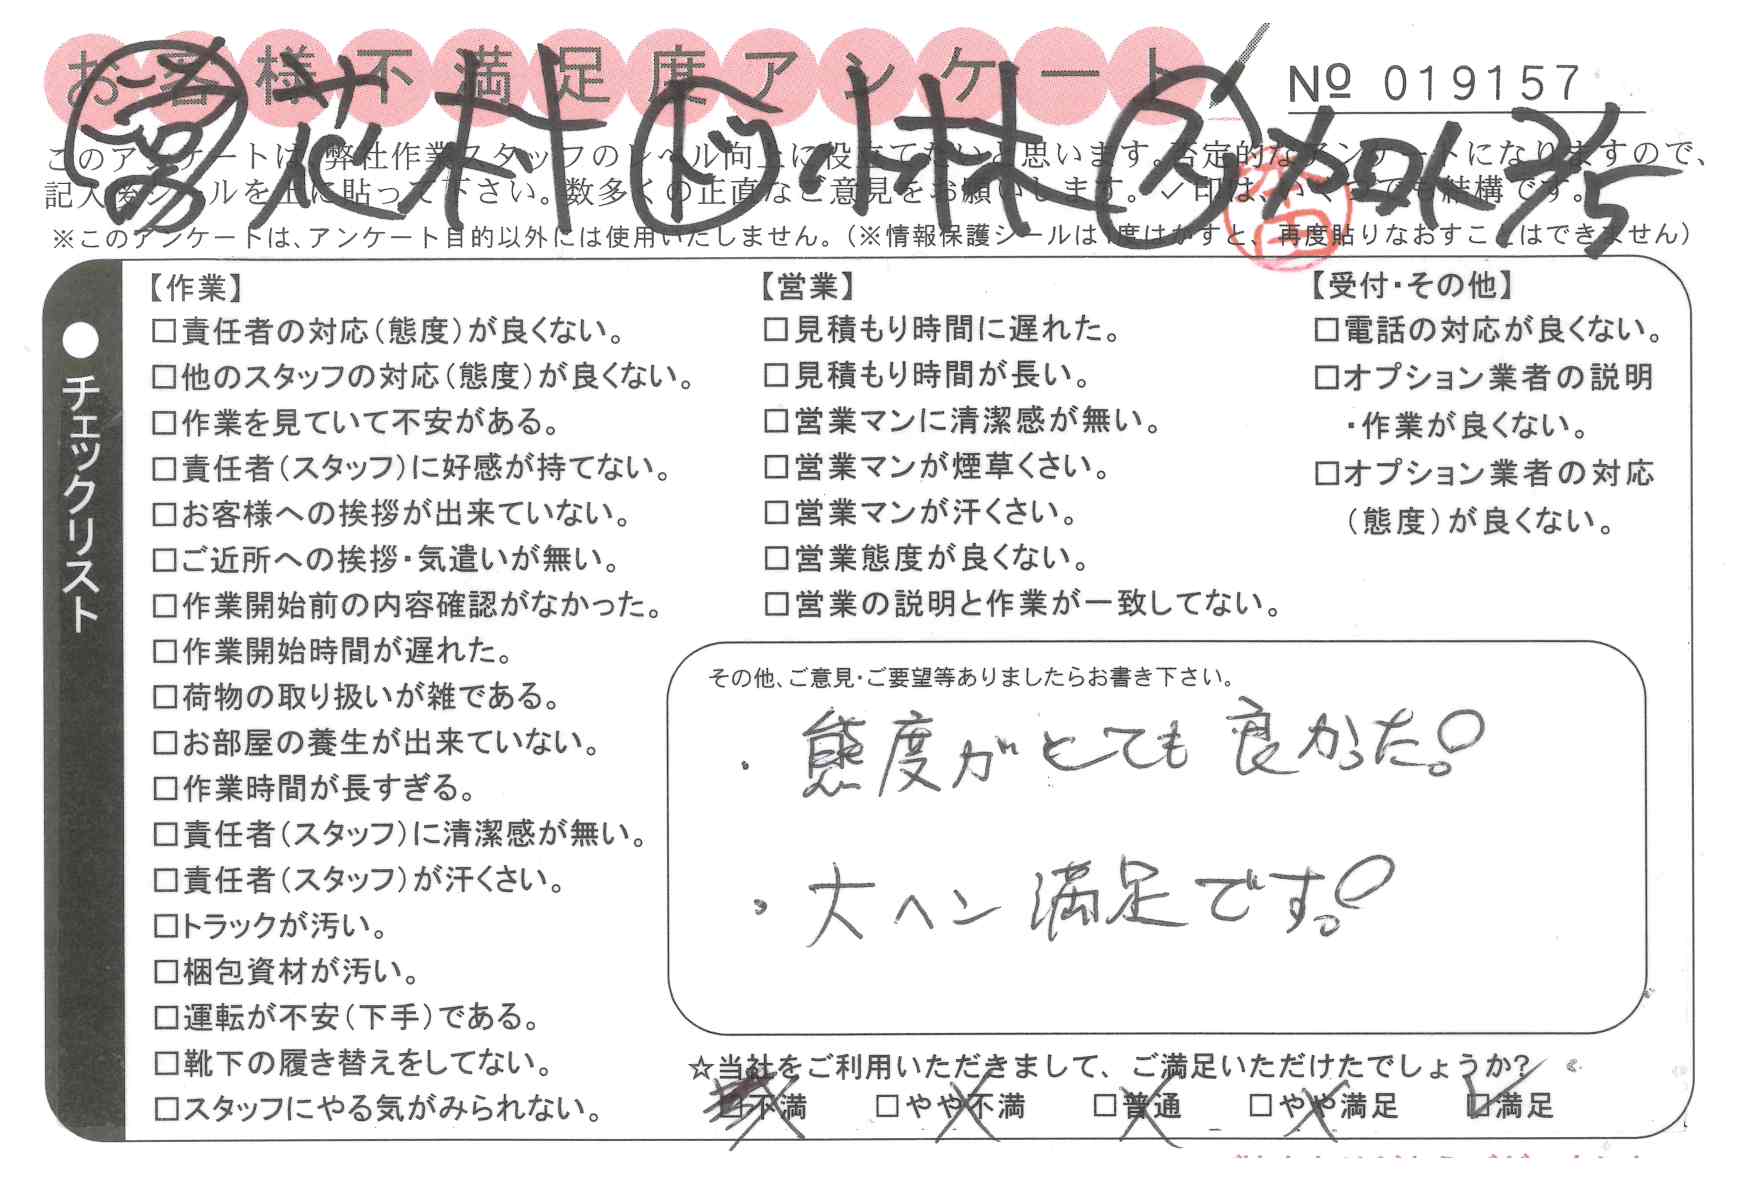 お客様不満足度アンケート
№ 019157
このアンケートは、弊社作業スタッフのレベル向上に役立てたいと思います。否定的なアンケートになりますので、
記入後シールを上に貼って下さい。数多くの正直なご意見をお願いします。✓印は、いくつでも結構です。
※このアンケートは、アンケート目的以外には使用いたしません。(※情報保護シールは1度はがすと、再度貼りなおすことはできません)
●チェックリスト
【作業】
□責任者の対応(態度)が良くない。
□他のスタッフの対応(態度)が良くない。
□作業を見ていて不安がある。
□責任者(スタッフ)に好感が持てない。
□お客様への挨拶が出来ていない。
□ご近所への挨拶・気遣いが無い。
□作業開始前の内容確認がなかった。
□作業開始時間が遅れた。
□荷物の取り扱いが雑である。
□お部屋の養生が出来ていない。
□作業時間が長すぎる。
□責任者(スタッフ)に清潔感が無い。
□責任者(スタッフ)が汗くさい。
□トラックが汚い。
□梱包資材が汚い。
□運転が不安(下手)である。
□靴下の履き替えをしてない。
□スタッフにやる気がみられない。
【営業】
□見積もり時間に遅れた。
□見積もり時間が長い。
□営業マンに清潔感が無い。
□営業マンが煙草くさい。
□営業マンが汗くさい。
□営業態度が良くない。
□営業の説明と作業が一致してない。
【受付・その他】
□電話の対応が良くない。
□オプション業者の説明
・作業が良くない。
□オプション業者の対応
(態度)が良くない。
その他、ご意見・ご要望等ありましたらお書き下さい。
・態度がとても良かった!
・大ヘン満足です!
☆当社をご利用いただきまして、ご満足いただけたでしょうか?
□不満 □やや不満 □普通 □やや満足 □満足